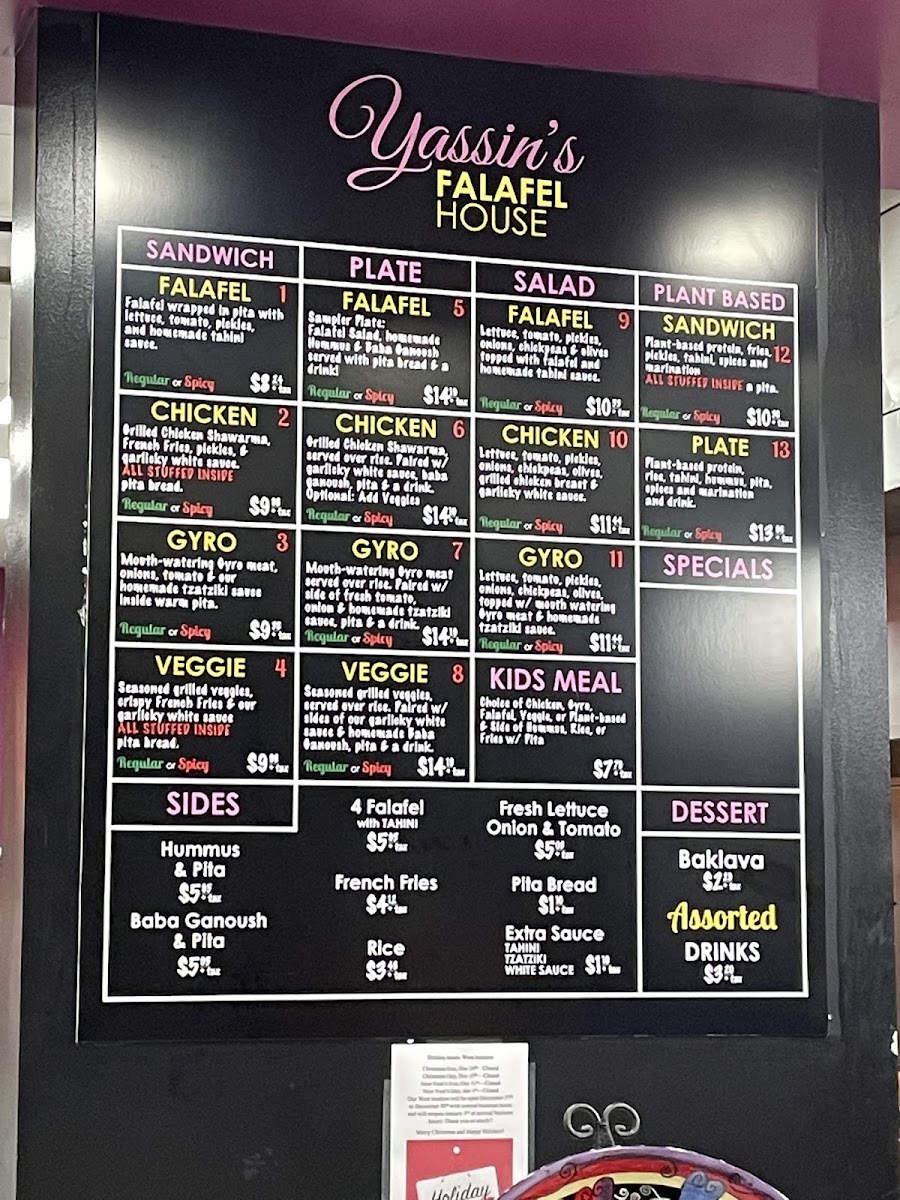 Yassin's
FALAFEL
HOUSE
SANDWICH
FALAFEL 1
Falafel wrapped in pita with
lettuce, tomato, pickles,
and homemade tahini
sauce.
Regular or Spicy
CHICKEN 2
Grilled Chicken Shawarma,
French Fries, pickles, &
garlicky white sauce.
ALL STUFFED INSIDE
pita bread.
Regular or Spicy
GYRO 3
Mouth-watering Gyro meat,
onions, tomato & our
homemade tzatziki sauce
inside warm pita.
Regular or Spicy
VEGGIE 4
Seasoned grilled veggies,
crispy French Fries & our
garlicky white sauce
ALL STUFFED INSIDE
pita bread.
Regular or Spicy
PLATE
FALAFEL 5
Sampler Plate:
Falafel Salad, homemade
Hummus & Baba Ganoush
served with pita bread & a
drink!
Regular or Spicy
CHICKEN 6
Grilled Chicken Shawarma,
served over rice. Paired w/
garlicky white sauce, baba
ganoush, pita & a drink.
Optional: Add Veggies
Regular or Spicy
GYRO 7
Mouth-watering Gyro meat
served over rice. Paired w/
side of fresh tomato,
onion & homemade tzatziki
sauce, pita & a drink.
Regular or Spicy
VEGGIE 8
Seasoned grilled veggies,
served over rice. Paired w/
sides of our garlicky white
sauce & homemade Baba
Ganoush, pita & a drink.
Regular or Spicy
SALAD
FALAFEL 9
Lettuce, tomato, pickles,
onions, chickpeas & olives
topped with falafel and
homemade tahini sauce.
Regular or Spicy
CHICKEN 10
Lettuce, tomato, pickles,
onions, chickpeas, olives,
grilled chicken breast &
garlicky white sauce.
Regular or Spicy
GYRO 11
Lettuce, tomato, pickles,
onions, chickpeas, olives,
topped w/ mouth watering
Gyro meat & homemade
tzatziki sauce.
Regular or Spicy
KIDS MEAL
Choice of Chicken, Gyro,
Falafel, Veggie, or Plant-based
& Side of Hummus, Rice, or
Fries w/ Pita
PLANT BASED
SANDWICH
Plant-based protein, fries, 12
pickles, tahini, spices and
marination
ALL STUFFED INSIDE a pita.
Regular or Spicy
PLATE 13
Plant-based protein,
rice, tahini, hummus, pita,
spices and marination
and drink.
Regular or Spicy
SPECIALS
SIDES
Hummus
& Pita
Baba Ganoush
& Pita
4 Falafel
with TAHINI
French Fries
Rice
Fresh Lettuce
Onion & Tomato
Pita Bread
Extra Sauce
TAHINI
TZATZIKI
WHITE SAUCE
DESSERT
Baklava
Assorted
DRINKS
Merry Christmas and Happy Holidays!
Holiday